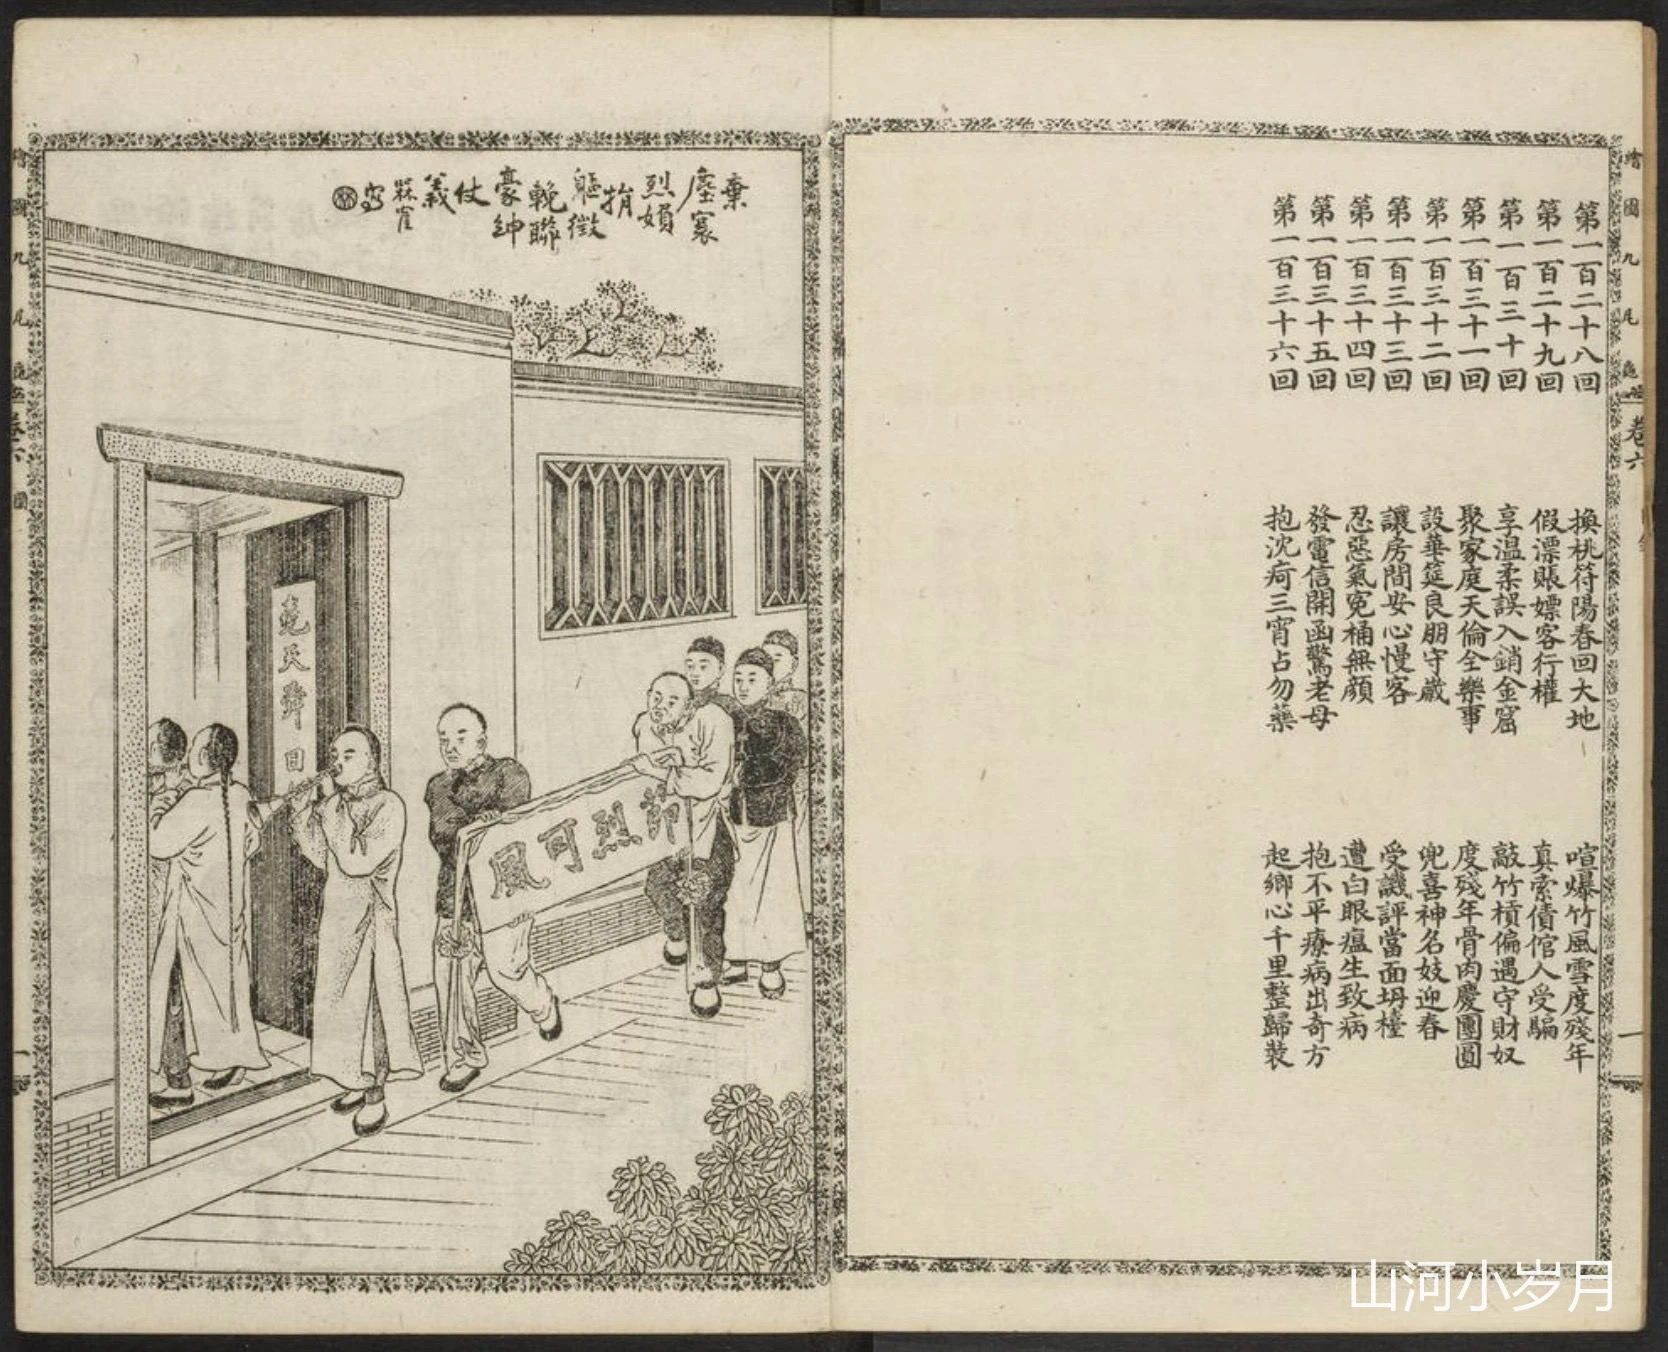 繪圖九尾龜 卷六
第一百二十八回 換桃符陽春回大地 喧爆竹風雪度殘年
第一百二十九回 假漂賬嫖客行權 真索債倌人受騙
第一百三十回 享溫柔誤入銷金窟 敲竹槓偏遇守財奴
第一百三十一回 聚家庭天倫全樂事 度殘年骨肉慶團圓
第一百三十二回 設華筵良朋守歲 兜喜神名妓迎春
第一百三十三回 讓房間安心慢客 受譏評當面坍檯
第一百三十四回 忍惡氣冤桶無顏 遭白眼瘟生致病
第一百三十五回 發電信開函驚老母 抱不平療病出奇方
第一百三十六回 抱沈疴三宵占勿藥 起鄉心千里整歸裝
棄
塵寰
烈媍
捐
軀徵
輓聯
豪紳
仗
義
寫
堯天舜日
節烈可風
繪圖九尾龜 卷六 圖
山河小岁月